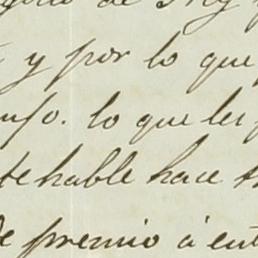 de
y por lo que
nfo. lo que les
te hable hace
de premio á ent